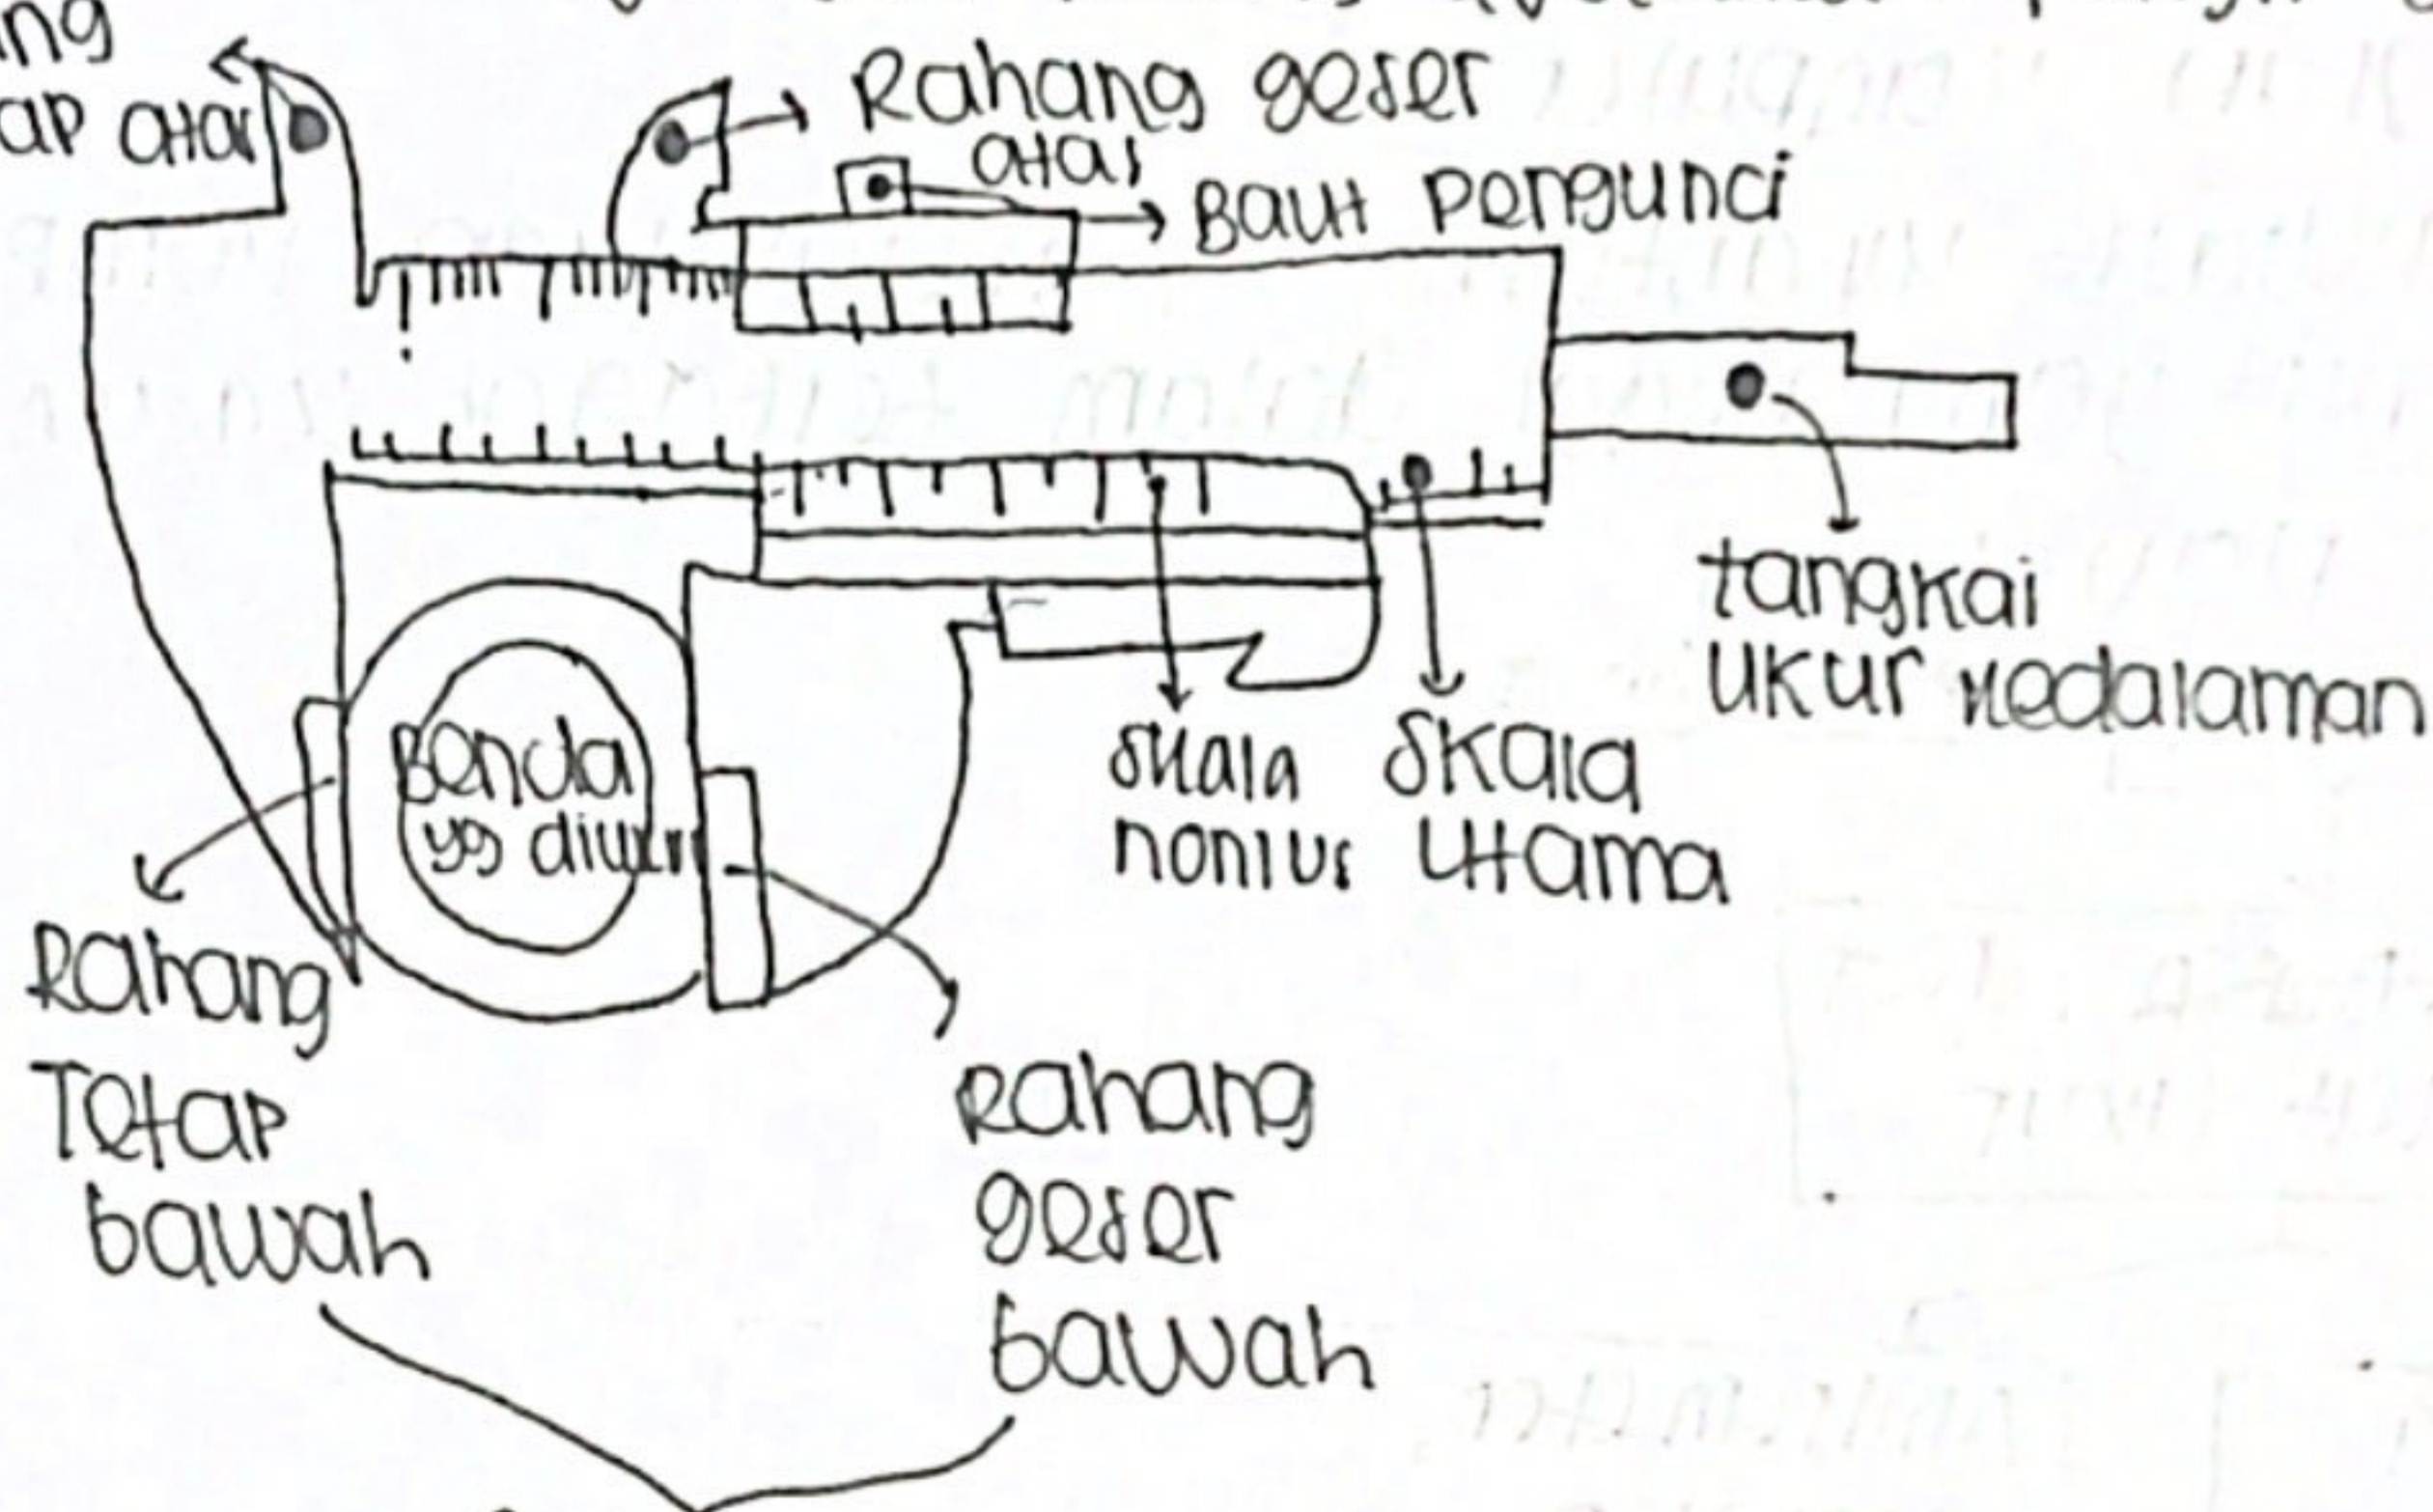 ng
ap atas
Rahang geser
atas
Baut pengunci
tangkai
ukur kedalaman
skala
nonius
Skala
utama
Benda
yg diukur
Rahang
Tetap
bawah
Rahang
geser
bawah